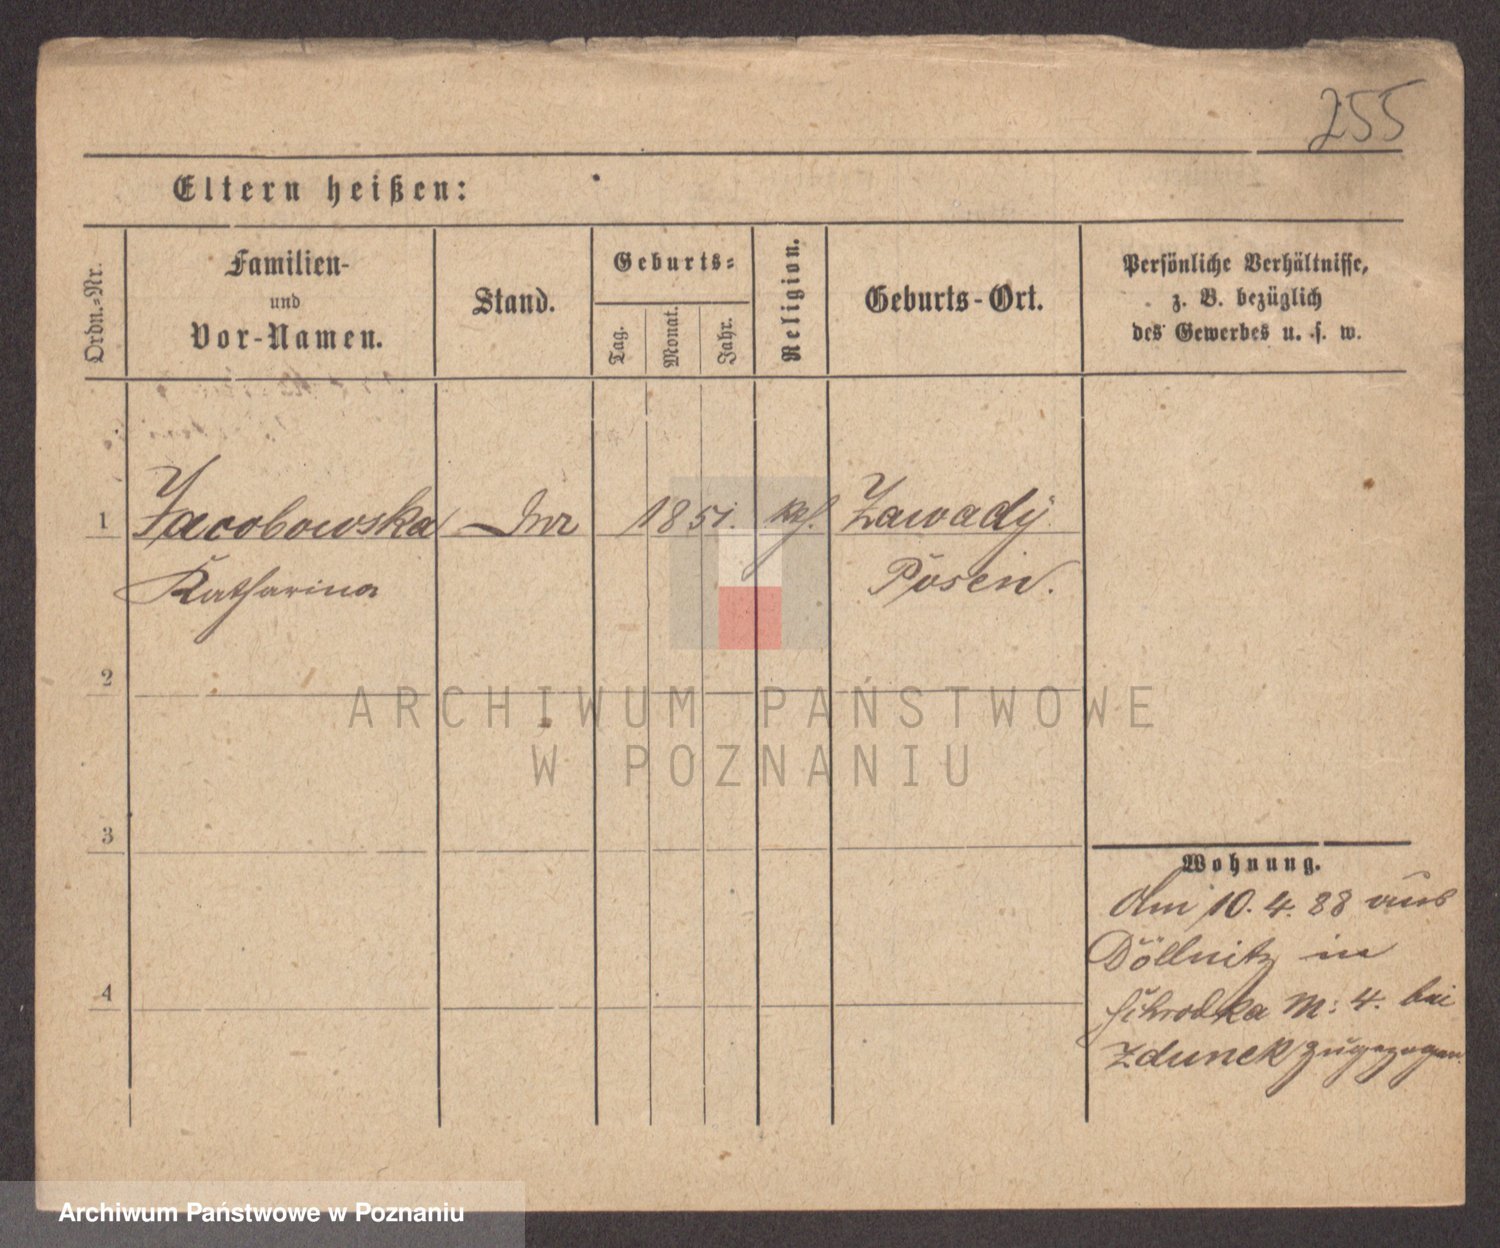 255
Eltern heißen:
Ordn.=Nr.
Familien-
und
Vor-Namen.
Stand.
Geburts=
Tag.
Monat.
Jahr.
Religion.
Geburts-Ort.
Persönliche Verhältnisse,
z. B. bezüglich
des Gewerbes u. s. w.
1 Jacobowska 1851. kth. Zawady
Katharina Posen.
2
ARCHIWUM PAŃSTWOWE
W POZNANIU
3
Wohnung.
Am 10. 4. 88 aus
Döllnitz in
Schrodka M: 4. bei
Zdunek zugezogen.
4
Archiwum Państwowe w Poznaniu